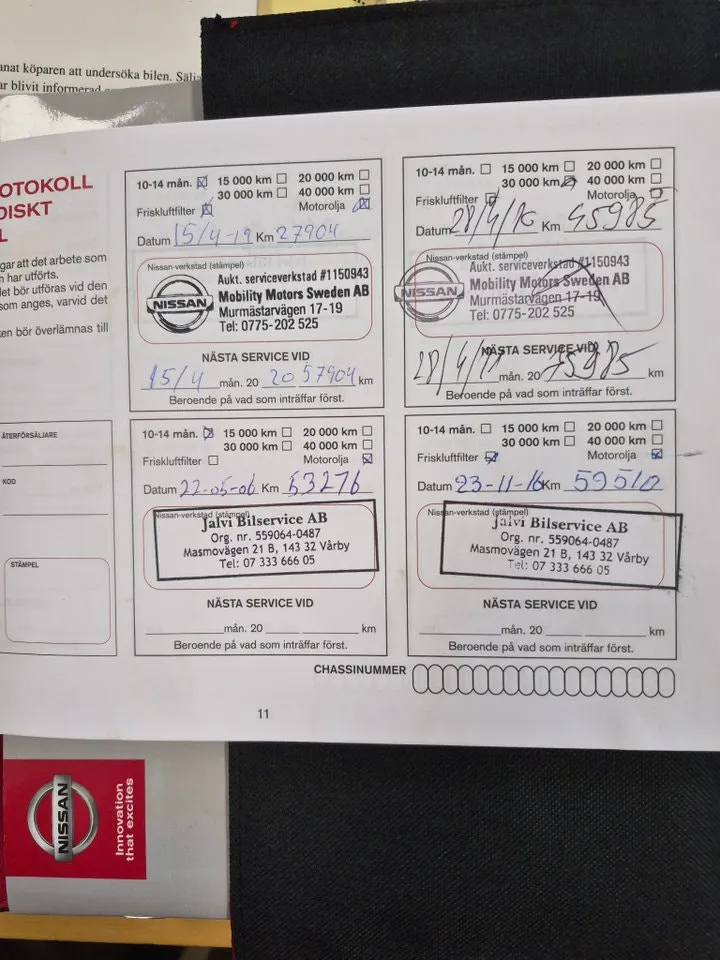 anat köparen att undersöka bilen.
ar blivit informerad
OTOKOLL
DISKT
L
gar att det arbete som
n har utförts.
det bör utföras vid den
som anges, varvid det
ken bör överlämnas till
ÅTERFÖRSÄLJARE
KOD
STÄMPEL
10-14 mån. 15 000 km 20 000 km
30 000 km 40 000 km
Friskluftfilter Motorolja
Datum 15/4-19 Km 27904
Nissan-verkstad (stämpel)
NISSAN
Aukt. serviceverkstad #1150943
Mobility Motors Sweden AB
Murmästarvägen 17-19
Tel: 0775-202 525
NÄSTA SERVICE VID
15/4 mån. 20 20 57904 km
Beroende på vad som inträffar först.
10-14 mån. 15 000 km 20 000 km
30 000 km 40 000 km
Friskluftfilter Motorolja
Datum 28/4/ Km 45985
Nissan-verkstad (stämpel)
NISSAN
Aukt. serviceverkstad #1150943
Mobility Motors Sweden AB
Murmästarvägen 17-19
Tel: 0775-202 525
NÄSTA SERVICE VID
28/4/ mån. 20 75985 km
Beroende på vad som inträffar först.
10-14 mån. 15 000 km 20 000 km
30 000 km 40 000 km
Friskluftfilter Motorolja
Datum 22-05-06 Km 53276
Nissan-verkstad (stämpel)
Jalvi Bilservice AB
Org. nr. 559064-0487
Masmovägen 21 B, 143 32 Vårby
Tel: 07 333 666 05
NÄSTA SERVICE VID
mån. 20 km
Beroende på vad som inträffar först.
10-14 mån. 15 000 km 20 000 km
30 000 km 40 000 km
Friskluftfilter Motorolja
Datum 23-11-16 Km 59510
Nissan-verkstad (stämpel)
Jalvi Bilservice AB
Org. nr. 559064-0487
Masmovägen 21 B, 143 32 Vårby
Tel: 07 333 666 05
NÄSTA SERVICE VID
mån. 20 km
Beroende på vad som inträffar först.
CHASSINUMMER
11
NISSAN
Innovation
that excites